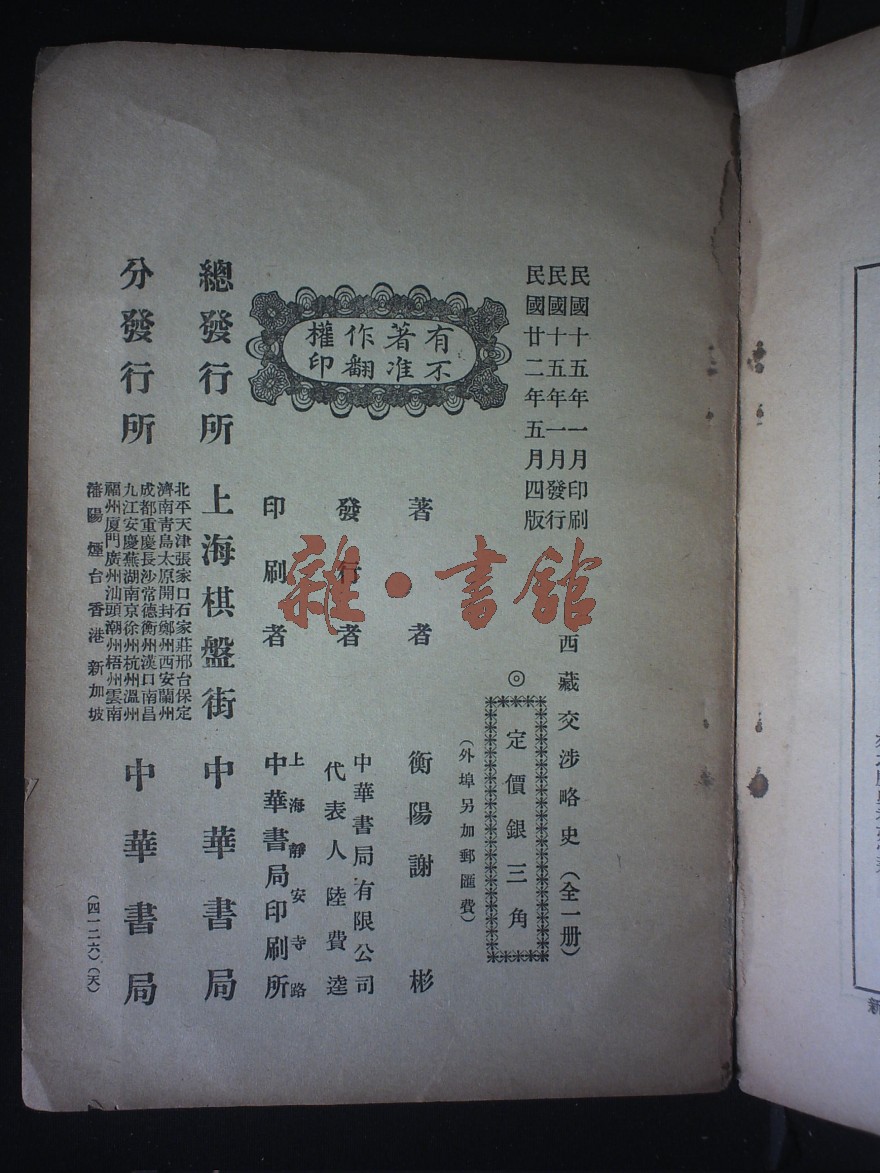 民國十五年一月印刷
民國十五年一月發行
民國廿二年五月四版
西藏交涉略史（全一册）
◎
定價銀三角
（外埠另加郵匯費）
有著作權
不准翻印
著者 衡陽謝彬
發行者 中華書局有限公司
代表人陸費逵
印刷者 上海靜安寺路
中華書局印刷所
總發行所 上海棋盤街 中華書局
分發行所
北平天津張家口石家莊邢台保定
濟南青島太原開封鄭州西安蘭州
成都重慶長沙常德衡州漢口南昌
九江安慶蕪湖南京徐州杭州溫州
福州厦門廣州汕頭潮州梧州雲南
瀋陽煙台香港新加坡
中華書局
（四一二六）（天）
雜·書館
新